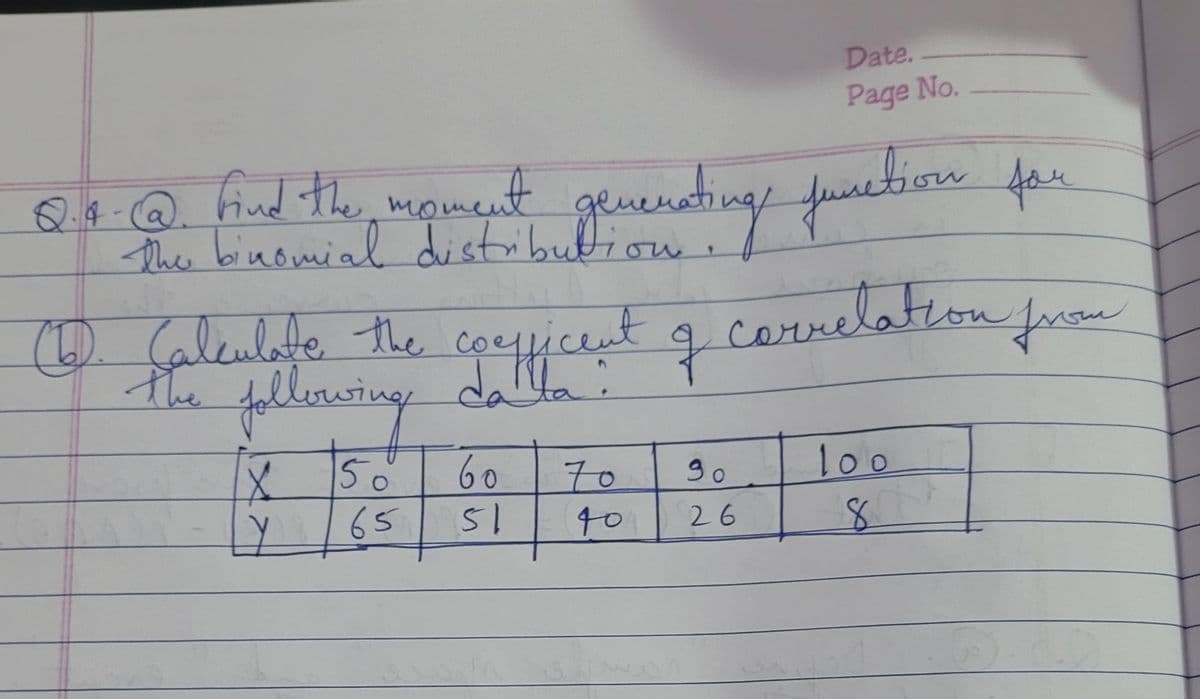 Date.
Page No.
Q.4-(a). Find the moment generating function for
the binomial distribution.
(b). Calculate the coefficent of correlation from
the following data:
X 50 60 70 90 100
Y 65 51 40 26 8